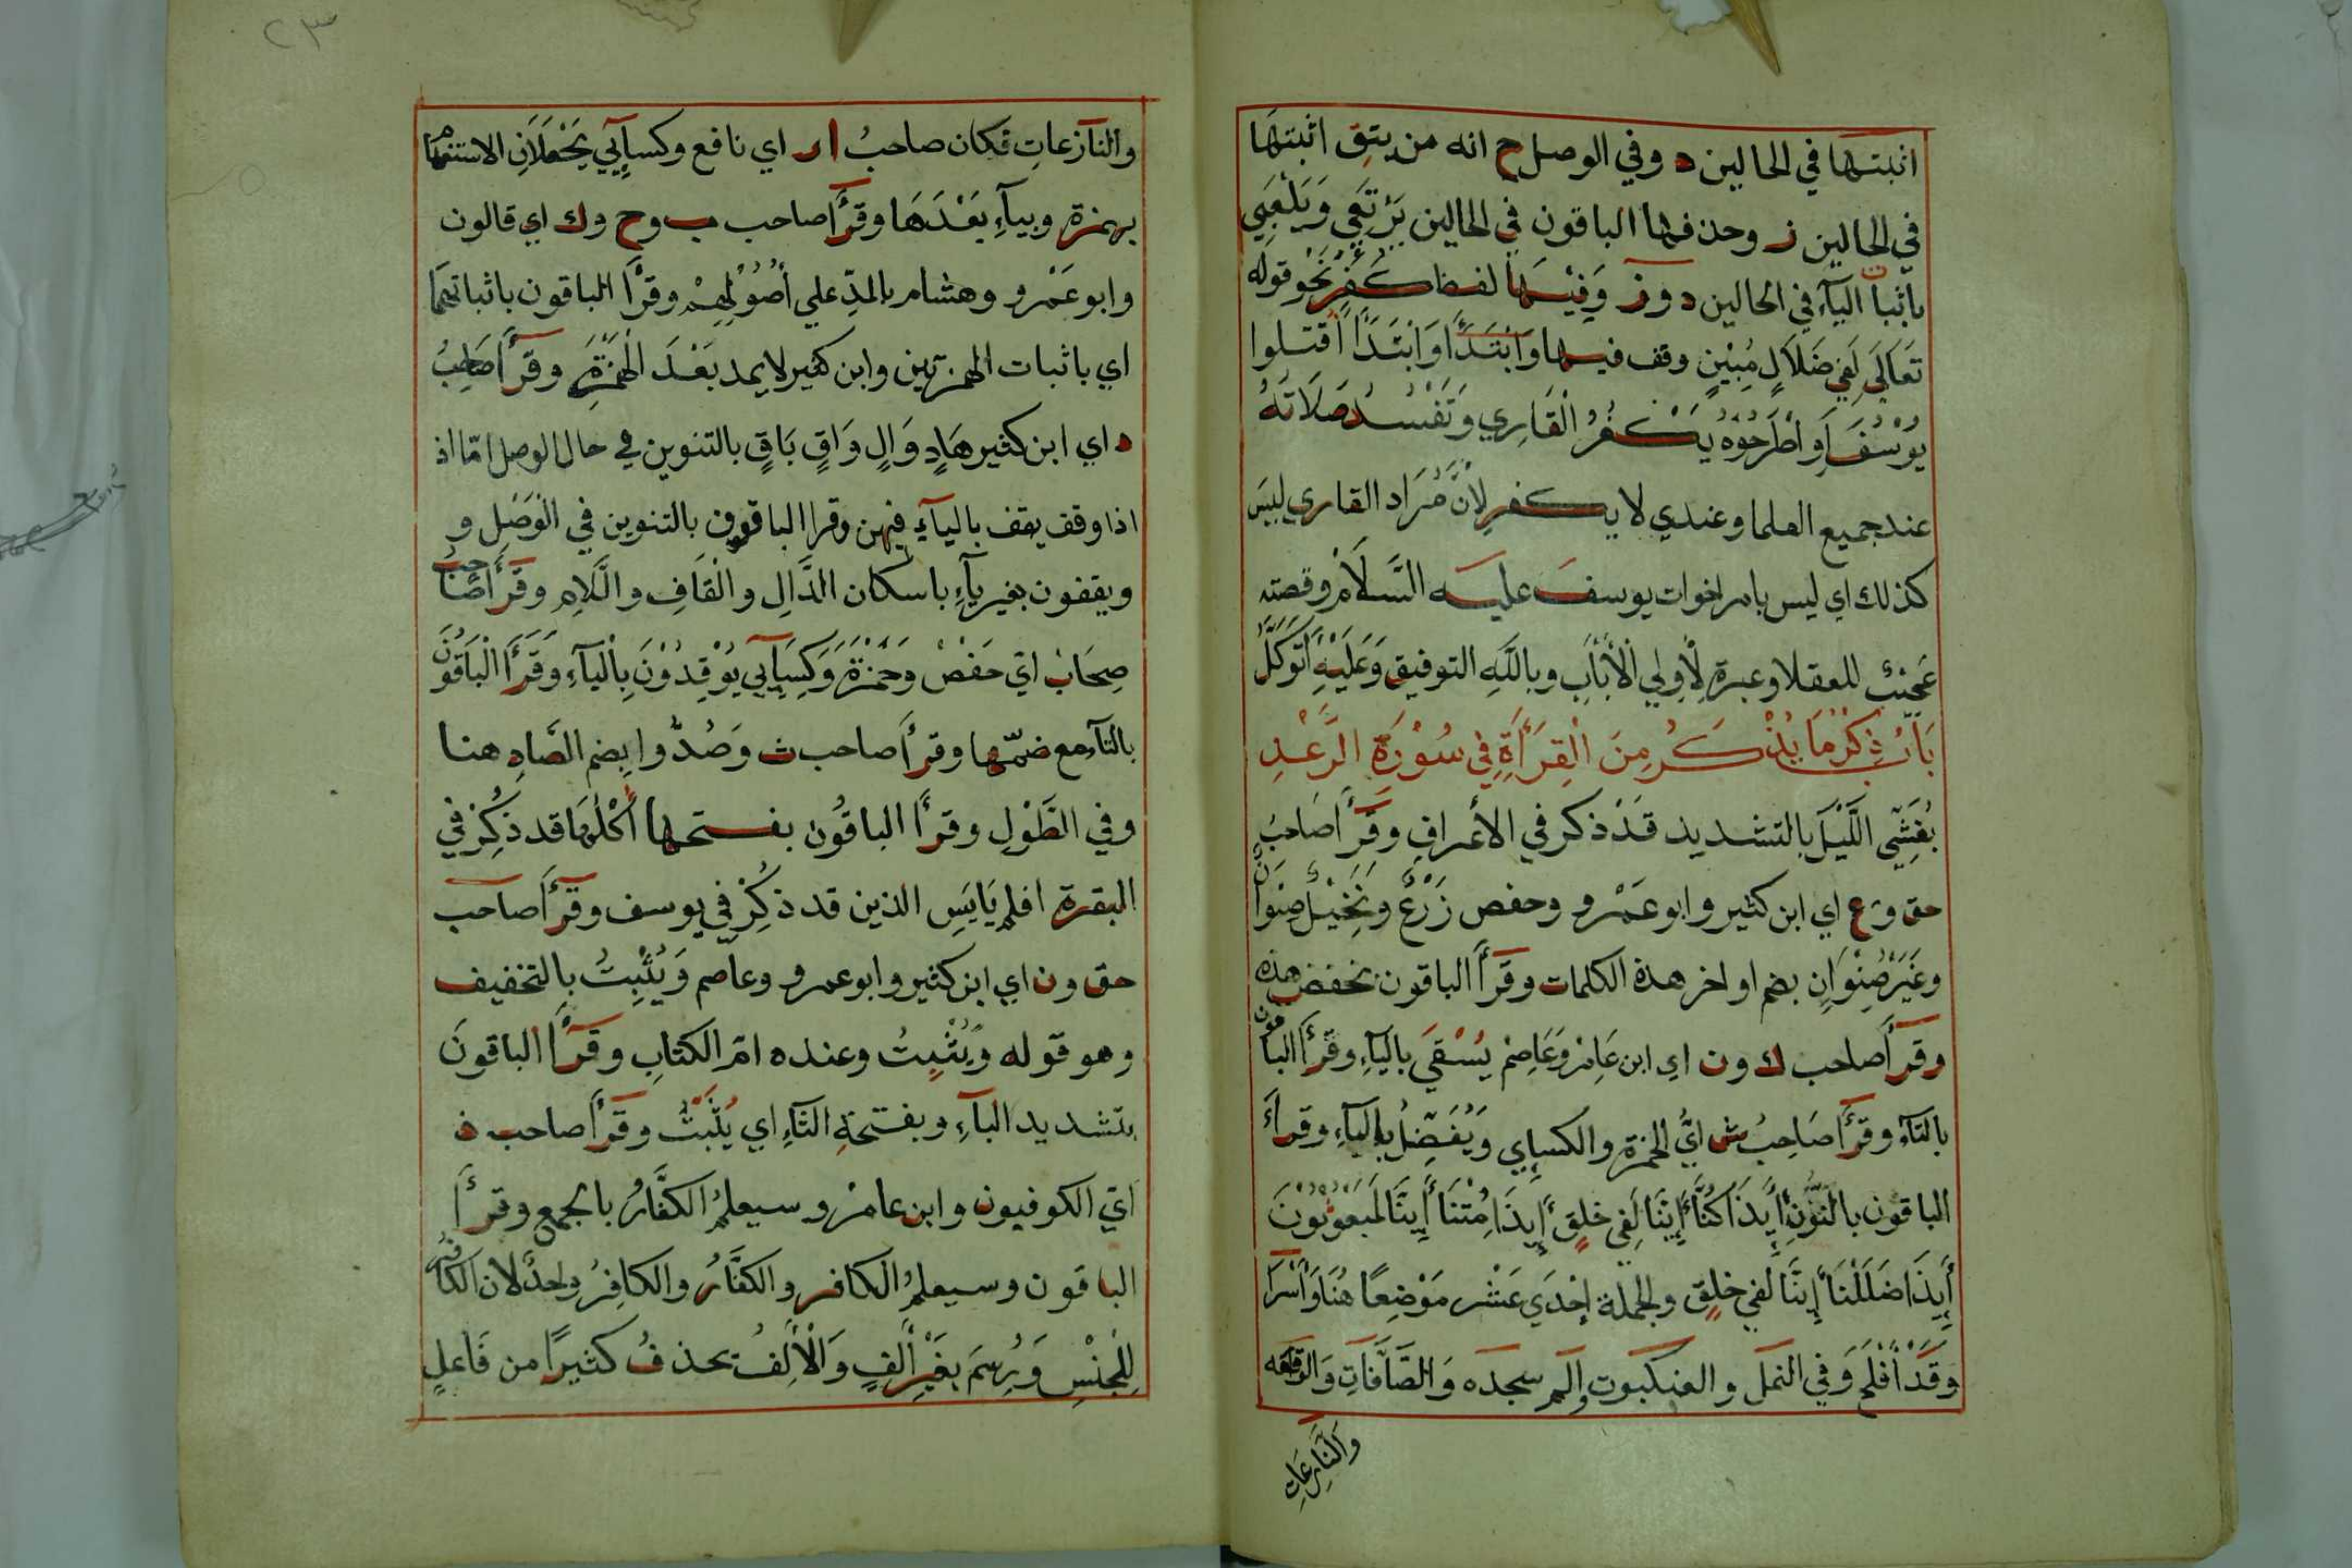 اثبتها في الحالين د وفي الوصل ح انه من يتق اثبتها
في الحالين ز وحذفها الباقون في الحالين يَرْتَعِي وَيَلْعَبي
باثبات اليآء في الحالين د وز وَفِيْهَا لفظ كَفِر نَحْو قوله
تَعَالَي لَفِي ضَلَالٍ مُبِيْنٍ وقف فيها وَابْتَدَأ وَابْتَدَأ اُقتلوا
يُوْسُفَ أَوِ اطْرَحُوْهُ يَكْفُرُ الْقَارِي وَتَفْسُدُ صَلَاتَهُ
عند جميع العلما وعندي لا يكفر لِأَنَّ مُرَاد القاري ليسَ
كذلك اي ليس بامر اخوات يوسفَ عليه السَّلَامْ وقصته
للعقلا وعبرة لِأُولِي الْأَلْبَابِ وبِاللَّهِ التوفيق وَعَلَيْهِ أَتَوَكَّلُ
بَابُ ذِكْرِ مَا يُذْكَرُ مِنَ الْقِرَأَةِ فِي سُوْرَةِ الرَّعْدِ
يُغَشِّي اللَّيْلَ بالتشديد قَدْ ذكر في الأعراف وقَرَأَ صَاحبُ
حق وع اي ابن كثير وابو عَمْرٍو وحفص زَرْعٌ وَنَخِيْلٌ صِنْوَانٌ
وغَيْرُ صِنْوَانٍ بضم اواخر هذة الكلمات وقَرَأَ الباقون بخفض هذه
وقرَأَ صاحب ك ون اي ابن عَامِرْ وَعَاصِمْ يُسْقَي بالْيَآءِ وقَرَأَ الباقون
بالتآءِ وقَرَأَ صَاحِبُ ش ايْ الحمزة والكسايي وَيُفَضِّلُ بِالْيَآءِ وقرأَ
الباقون بالنُّوْنِ أَيِذَا كُنَّا أَيِنَّا لَفِي خَلِقٍ أَيِذَا مُتْنَا أَيِنَّا لَمَبْعُوْثُوْنَ
أَيِذَا ضَلَلْنَا أَيِنَّا لَفِي خَلِقٍ والجملة اِحْدَي عَشْر مَوْضِعًا هُنَا وَأَسْرَا
وَقَدْ أَفْلَحَ وَفي النمل والعنكبوت والم سجده وَالصَّافَّاتِ وَالواقعه
وَالنَّازِعَاتِ
٢٣
والنآزعاتِ فكان صاحبُ ا ر اي نافع وكسآيي يَجْعَلَانِ الاستفهام
بهمزة وبيآءٍ بَعْدَهَا وقَرَأَ صاحب ب وح وك اي قالون
وابو عَمْرٍو وهشام بالمدِّ علي أُصُوْلِهِمْ وقرَأَ الباقون باثباتهما
اي باثبات الهمزتين وابن كثير لا يمد بَعْدَ الْهَمْزَةِ وقَرَأَ صَاحِبُ
د اي ابن كثير هَادٍ وَالٍ وَاقٍ بَاقٍ بالتنوين في حال الوصل امّا اذ
اذا وقف يقف باليآءِ فيهن وقرا الباقون بالتنوين في الْوَصْلِ و
ويقفون بغير يآءٍ باسكان الدَّالِ والْقَافِ واللَّامِ وقَرَأَ صَاحبُ
صِحَابْ ايْ حَفْصْ وَحَمْزَة وَكِسَآيي يُوْقِدُوْنَ بِالْيآءِ وَقَرَأَ الْبَاقُوْنَ
بالتآءِ مع ضمّها وقرأَ صاحب ث وَصُدُّوا بضم الصَّادِ هنا
وفي الطَّوْلِ وقرأَ الباقُون بفتحها أُكُلُهَا قد ذُكِرْ في
البقرة افلم يَايَسِ الذين قد ذُكِرْ في يوسف وقَرَأَ صاحب
حق ون اي ابن كثير وابو عمرو وعاصم وَيُثْبِتُ بِالتخفيف
وهو قوله وَيُثْبِتُ وعنده امّ الكتابِ وقَرَأَ الباقونَ
بتشديد البآءِ وبفتحةِ الثآءِ اي يُثَبِّتُ وقَرَأَ صاحب ذ
ايْ الكوفيون وابن عامرْ وسيعلمُ الكفَّارُ بالجمع وقرأَ
الباقون وسيعلمُ الكافر والكفَّارُ والكافِرُ واحدٌ لان الكافر
لِلْجِنْسِ وَرُسِمَ بِغَيْرِ أَلِفٍ وَالْأَلِفُ يحذفُ كثيرًا من فَاعلٍ